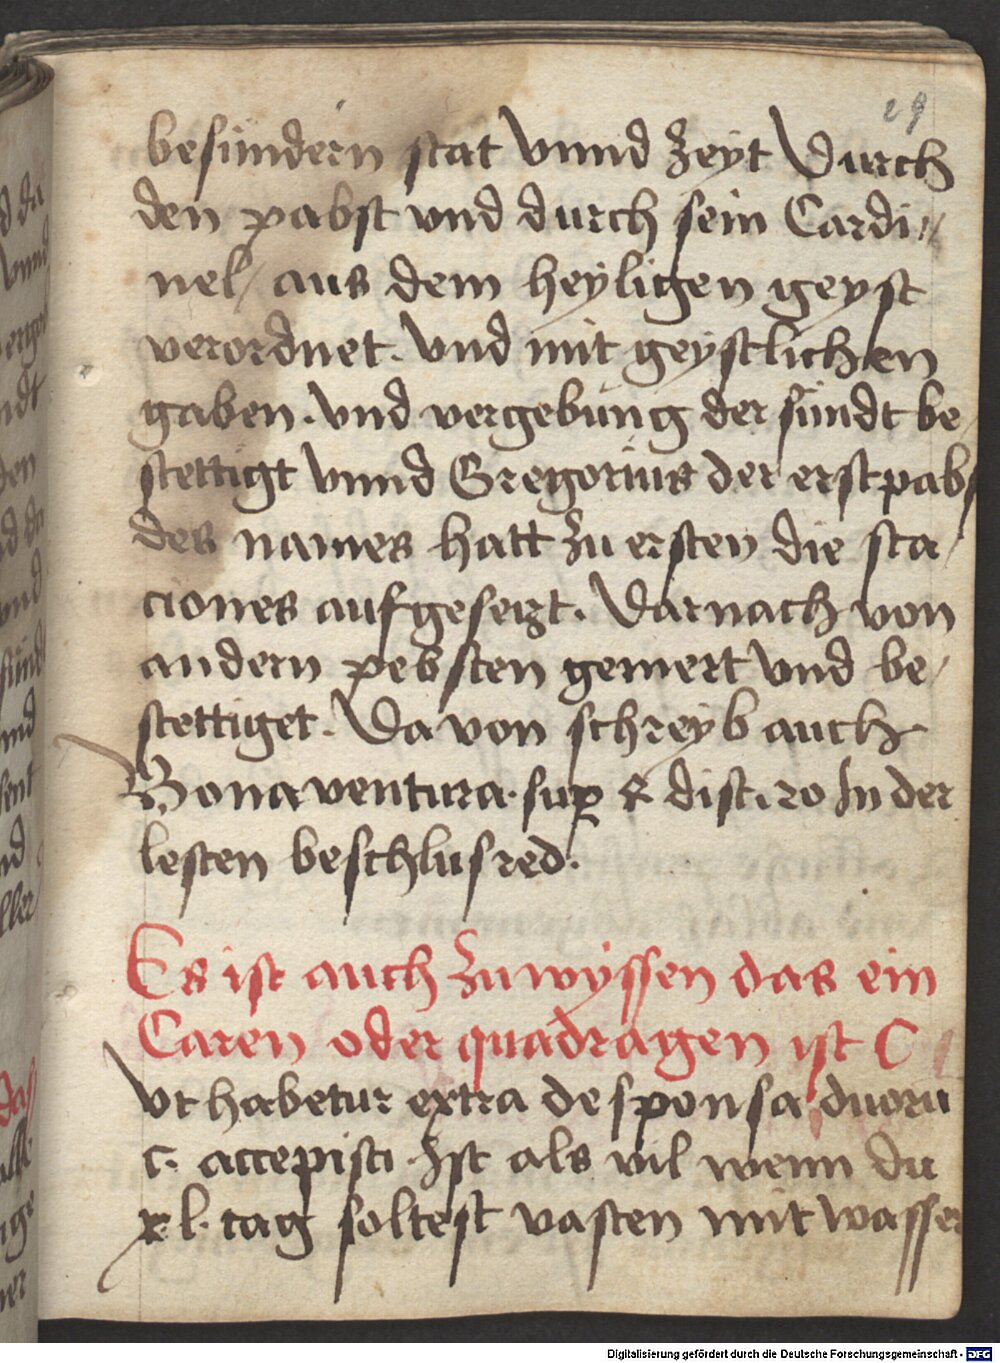 29
besundern stat vnnd zeyt Durch
den pabst vnd durch sein Cardi„
nel/ aus dem heyligen geyst
verordnet. vnd mit geystlichen
gaben. vnd vergebung der sundt be
stettigt vnnd Gregorius der erst pabs
des names hatt zu ersten die sta/
ciones aufgeseczt. Darnach von
andern pebsten gemert vnd be/
stettiget. Da von schreyb auch
Bonaventura. sup 4 dist. 20 In der
lesten beschlusred.
Es ist auch zu wyssen das ein
Caren oder quadragen ist C
vt habetur extra de sponsa duoru
c. accepisti Ist als vil wenn du
x.l. tag soltest vasten mit wasser
Digitalisierung gefördert durch die Deutsche Forschungsgemeinschaft - DFG